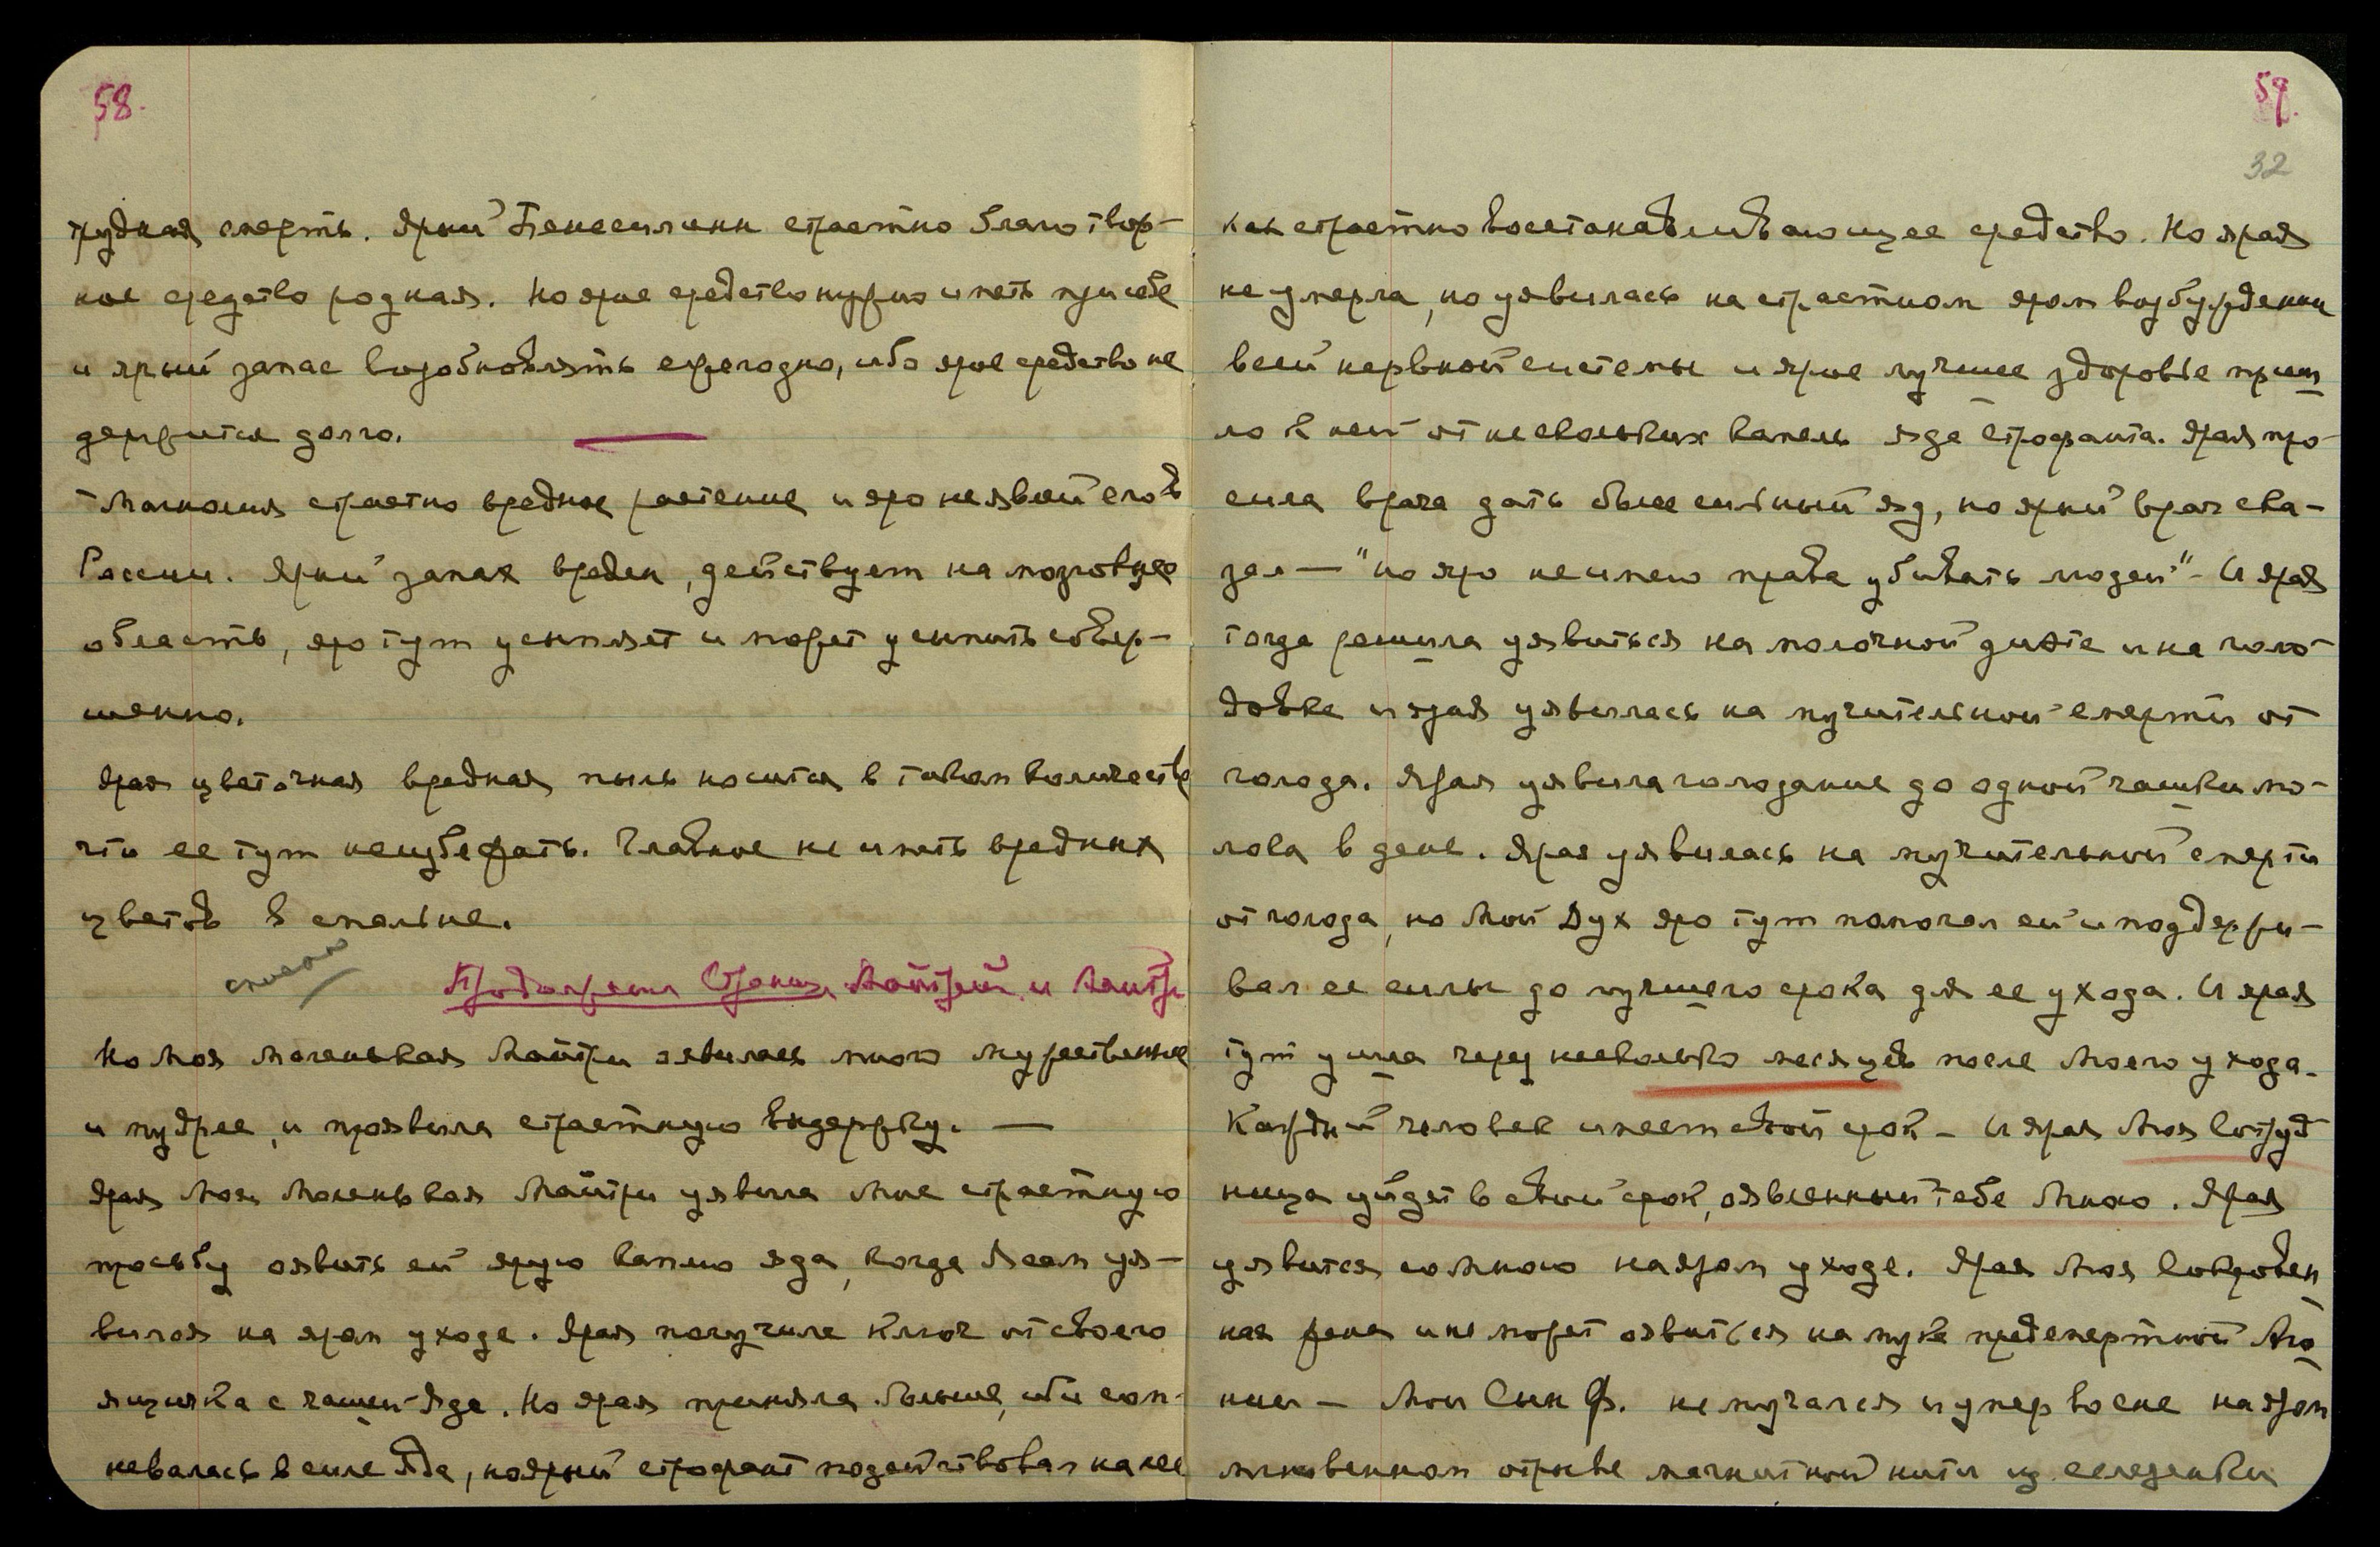 58.
трудная смерть. Ярый Пенесилин страстно благотвор-
ное средство родная. Но ярое средство нужно иметь при себе
и ярый запас возобновлять ежегодно, ибо ярое средство не
держится долго.
Магнолия страстно вредное растение и яро не являй его в
России. Ярый запах вреден, действует на мозговую
область, яро тут усыпляет и может усыпить совер-
шенно.
Ярая цветочная вредная пыль носится в таком количестве
что ее тут не избежать. Главное не иметь вредных
цветов в спальне.
Продолжение Страниц Майтрей и Майтри
Но Моя маленькая Майтри оявилась много мужественнее
и мудрее, и проявила страстную выдержку. —
Ярая Моя Маленькая Майтри уявила Мне страстную
просьбу оявить ей ярую каплю яда, когда Я сам уя-
вился на яром уходе. Ярая получила ключ от своего
ящичка с чашей яда. Но ярая приняла больше, ибо сом-
невалась в силе яда, но ярый строфант подействовал на нее
59.
32
как страстно восстанавливающее средство. Но ярая
не умерла, но уявилась на страстном яром возбуждении
всей нервной системы и ярое лучшее здоровье приш
ло к ней от нескольких капель яда строфанта. Ярая про-
сила врача дать более сильный яд, но ярый врач ска-
зал — "но яро не имею права убивать людей" - И ярая
тогда решила уявиться на молочной диэте и на голо-
довке и ярая уявилась на мучительной смерти от
голода. Ярая уявила голодание до одной чашки мо-
лока в день. Ярая уявилась на мучительной смерти
от голода, но Мой Дух яро тут помогал ей и поддержи-
вал ее силы до лучшего срока для ее ухода. И ярая
тут ушла через несколько месяцев после Моего ухода.
Каждый человек имеет свой срок - И ярая Моя Сотруд
ница уйдет в свой срок, оявленный тебе Мною. Ярая
уявится со Мною на яром уходе. Ярая Моя Сокровен
ная жена и не может оявиться на муке предсмертной Аго
нии - Мой Сын Ф. не мучался и умер во сне на яром
мгновенном отрыве магнитной нити из селезенки